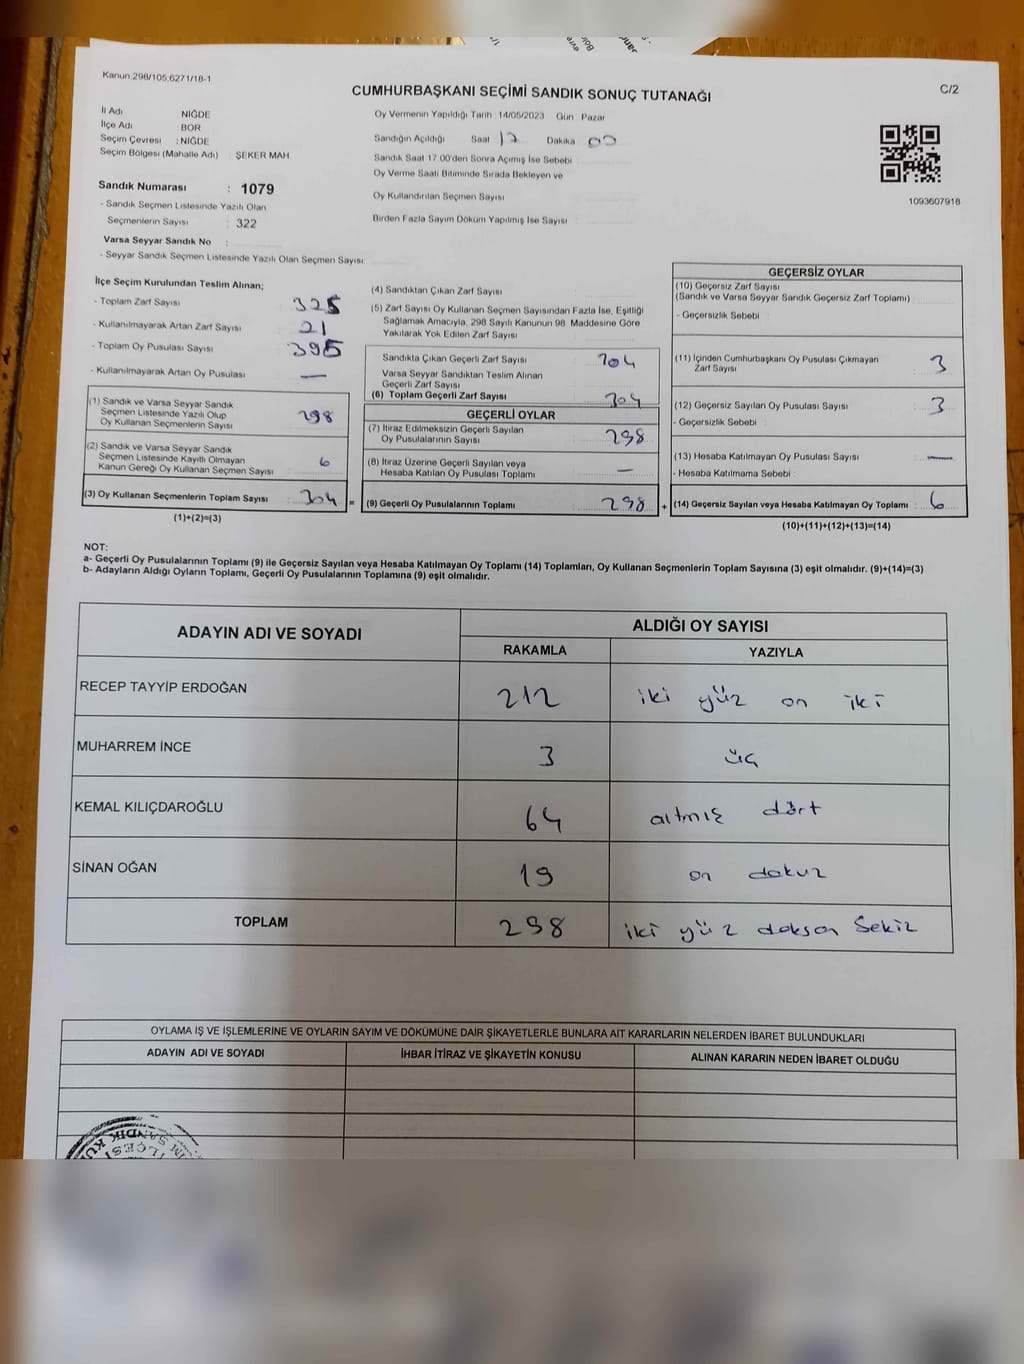 Kanun.298/105,6271/18-1
CUMHURBAŞKANI SEÇİMİ SANDIK SONUÇ TUTANAĞI
C/2
İl Adı NİĞDE
İlçe Adı BOR
Seçim Çevresi : NİĞDE
Seçim Bölgesi (Mahalle Adı) : ŞEKER MAH.
Oy Vermenin Yapıldığı Tarih 14/05/2023 Gün Pazar
Sandığın Açıldığı Saat 17 Dakika 00
Sandık Saat 17.00'den Sonra Açımış İse Sebebi
Oy Verme Saati Bitiminde Sırada Bekleyen ve
Oy Kullandırılan Seçmen Sayısı
Birden Fazla Sayım Döküm Yapılmış İse Sayısı
1093607918
Sandık Numarası : 1079
- Sandık Seçmen Listesinde Yazılı Olan
Seçmenlerin Sayısı : 322
Varsa Seyyar Sandık No :
- Seyyar Sandık Seçmen Listesinde Yazılı Olan Seçmen Sayısı:
İlçe Seçim Kurulundan Teslim Alınan;
- Toplam Zarf Sayısı 325
- Kullanılmayarak Artan Zarf Sayısı 21
- Toplam Oy Pusulası Sayısı 395
- Kullanılmayarak Artan Oy Pusulası —
(1) Sandık ve Varsa Seyyar Sandık
Seçmen Listesinde Yazılı Olup
Oy Kullanan Seçmenlerin Sayısı 298
(2) Sandık ve Varsa Seyyar Sandık
Seçmen Listesinde Kayıtlı Olmayan
Kanun Gereği Oy Kullanan Seçmen Sayısı 6
(3) Oy Kullanan Seçmenlerin Toplam Sayısı : 304 =
(1)+(2)=(3)
(4) Sandıktan Çıkan Zarf Sayısı
(5) Zarf Sayısı Oy Kullanan Seçmen Sayısından Fazla İse, Eşitliği
Sağlamak Amacıyla, 298 Sayılı Kanunun 98. Maddesine Göre
Yakılarak Yok Edilen Zarf Sayısı
Sandıkta Çıkan Geçerli Zarf Sayısı 304
Varsa Seyyar Sandıktan Teslim Alınan
Geçerli Zarf Sayısı
(6) Toplam Geçerli Zarf Sayısı 304
GEÇERLİ OYLAR
(7) İtiraz Edilmeksizin Geçerli Sayılan
Oy Pusulalarının Sayısı 298
(8) İtiraz Üzerine Geçerli Sayılan veya
Hesaba Katılan Oy Pusulası Toplamı —
(9) Geçerli Oy Pusulalarının Toplamı 298 +
GEÇERSİZ OYLAR
(10) Geçersiz Zarf Sayısı
(Sandık ve Varsa Seyyar Sandık Geçersiz Zarf Toplamı)
- Geçersizlik Sebebi :
(11) İçinden Cumhurbaşkanı Oy Pusulası Çıkmayan
Zarf Sayısı 3
(12) Geçersiz Sayılan Oy Pusulası Sayısı : 3
- Geçersizlik Sebebi
(13) Hesaba Katılmayan Oy Pusulası Sayısı : —
- Hesaba Katılmama Sebebi :
(14) Geçersiz Sayılan veya Hesaba Katılmayan Oy Toplamı : 6
(10)+(11)+(12)+(13)=(14)
NOT:
a- Geçerli Oy Pusulalarının Toplamı (9) ile Geçersiz Sayılan veya Hesaba Katılmayan Oy Toplamı (14) Toplamları, Oy Kullanan Seçmenlerin Toplam Sayısına (3) eşit olmalıdır. (9)+(14)=(3)
b- Adayların Aldığı Oyların Toplamı, Geçerli Oy Pusulalarının Toplamına (9) eşit olmalıdır.
ADAYIN ADI VE SOYADI ALDIĞI OY SAYISI
RAKAMLA YAZIYLA
RECEP TAYYİP ERDOĞAN 212 iki yüz on iki
MUHARREM İNCE 3 üç
KEMAL KILIÇDAROĞLU 64 altmış dört
SİNAN OĞAN 19 on dokuz
TOPLAM 298 iki yüz doksan sekiz
OYLAMA İŞ VE İŞLEMLERİNE VE OYLARIN SAYIM VE DÖKÜMÜNE DAİR ŞİKAYETLERLE BUNLARA AİT KARARLARIN NELERDEN İBARET BULUNDUKLARI
ADAYIN ADI VE SOYADI İHBAR İTİRAZ VE ŞİKAYETİN KONUSU ALINAN KARARIN NEDEN İBARET OLDUĞU